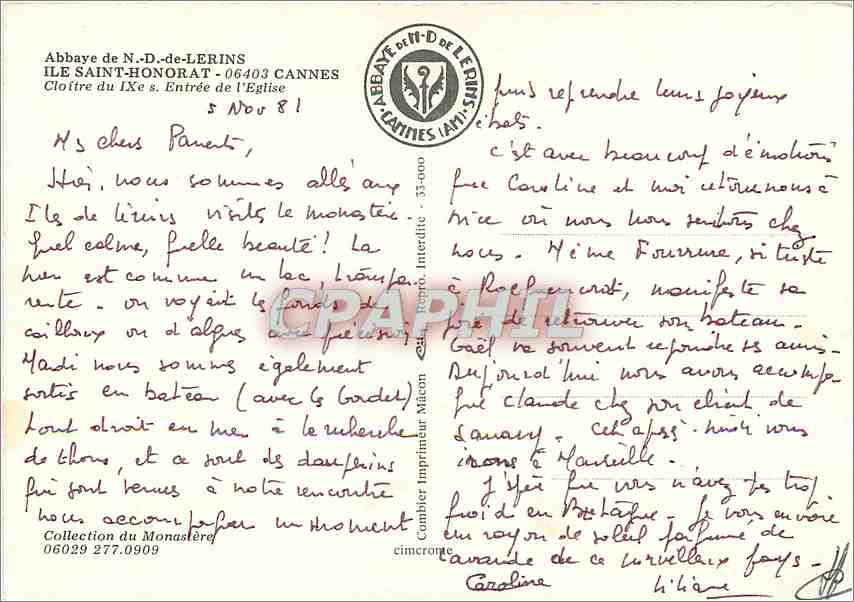 Abbaye de N.-D.-de-LERINS
ILE SAINT-HONORAT - 06403 CANNES
Cloître du IXe s. Entrée de l'Eglise
ABBAYE DE N-D DE LERINS
CANNES (AM)
5 Nov 81
Ms chers Parents,
Hier, nous sommes allés aux
Iles de Lérins visiter le monastère.
Quel calme, quelle beauté ! La
mer est comme un lac transpa
rente. on voyait les fonds de
cailloux ou d'algues avec précision
Mardi nous sommes également
sortis en bateau (avec les Gordet)
tout droit en mer à la recherche
de thons, et ce sont des dauphins
qui sont venus à notre rencontre
nous accompagner un moment
Collection du Monastère
06029 277.0909
Combier Imprimeur Mâcon
Repro. Interdite - 33-000
cimcrome
CPAPHIL
puis reprendre leurs joyeux
ébats.
c'est avec beaucoup d'émotions
que Caroline et moi retournons à
Nice où nous nous sentons chez
nous. Même Fourrure, si triste
à Rocquencourt, manifeste sa
joie de retrouver son bateau.
Gaël va souvent rejoindre ses amis.
Aujourd'hui nous avons accompa
gné Claude chez son client de
Sanary. Cet après-midi nous
irons à Marseille.
J'espère que vous n'avez pas trop
froid en Bretagne. Je vous envoie
un rayon de soleil parfumé de
lavande de ce merveilleux pays.
Caroline
Liliane